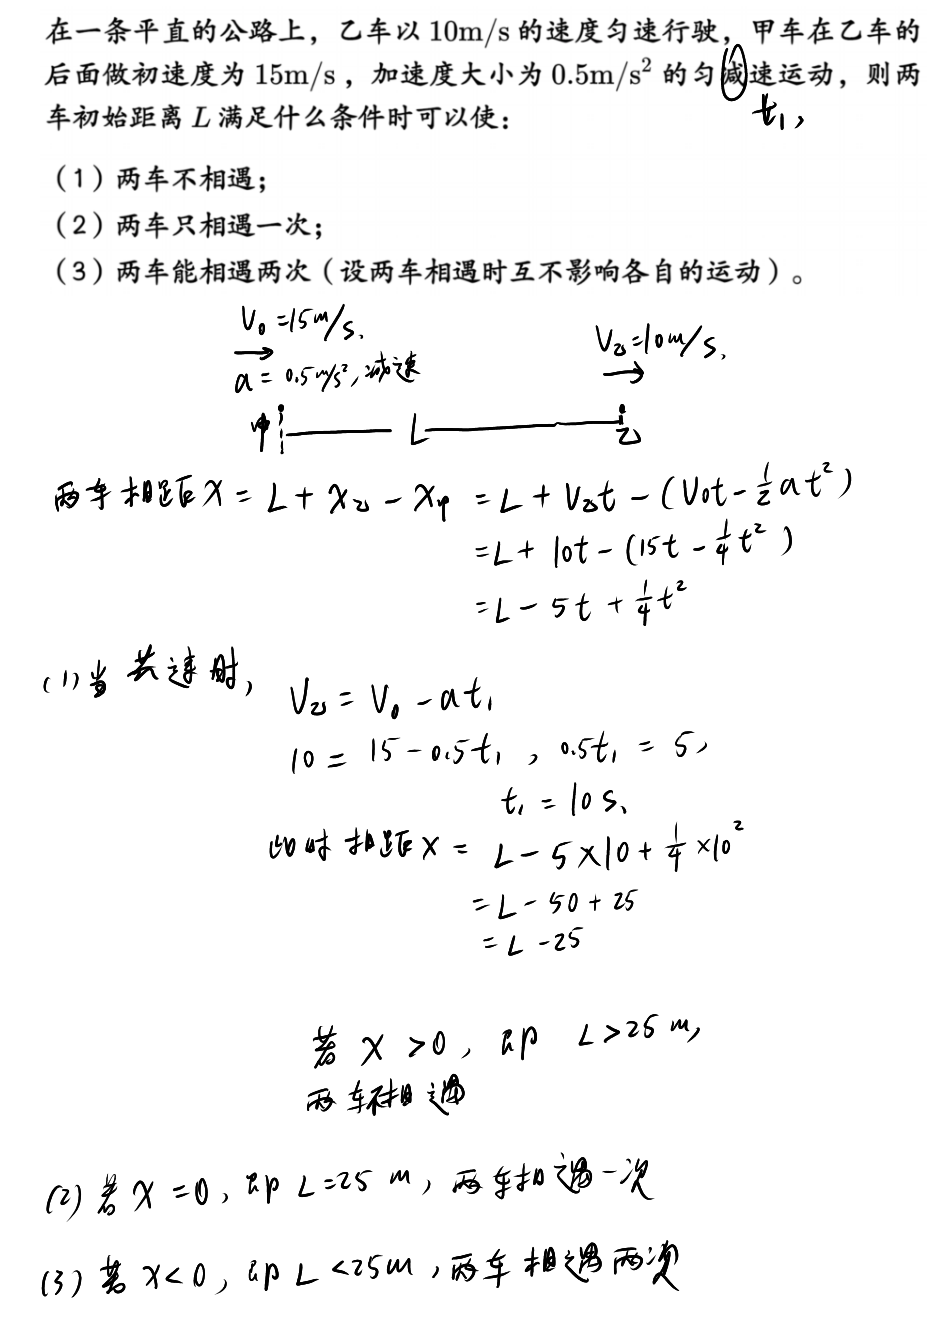 在一条平直的公路上，乙车以 10m/s 的速度匀速行驶，甲车在乙车的
后面做初速度为 15m/s ，加速度大小为 0.5m/s² 的匀减速运动，则两
车初始距离 L 满足什么条件时可以使：
t₁，
（1）两车不相遇；
（2）两车只相遇一次；
（3）两车能相遇两次（设两车相遇时互不影响各自的运动）。
V₀=15m/s、
V乙=10m/s、
a = 0.5m/s²，减速
甲 L 乙
两车相距X = L + X乙 - X甲 = L + V乙t - (V₀t - ½at²)
= L + 10t - (15t - ¼t²)
= L - 5t + ¼t²
(1) 当共速时，
V乙 = V₀ - at₁
10 = 15 - 0.5t₁ ，0.5t₁ = 5，
t₁ = 10 s、
此时相距X = L - 5×10 + ¼×10²
= L - 50 + 25
= L - 25
若 X > 0，即 L > 25 m，
两车不相遇
(2) 若 X = 0，即 L = 25 m，两车相遇一次
(3) 若 X < 0，即 L < 25m，两车相遇两次